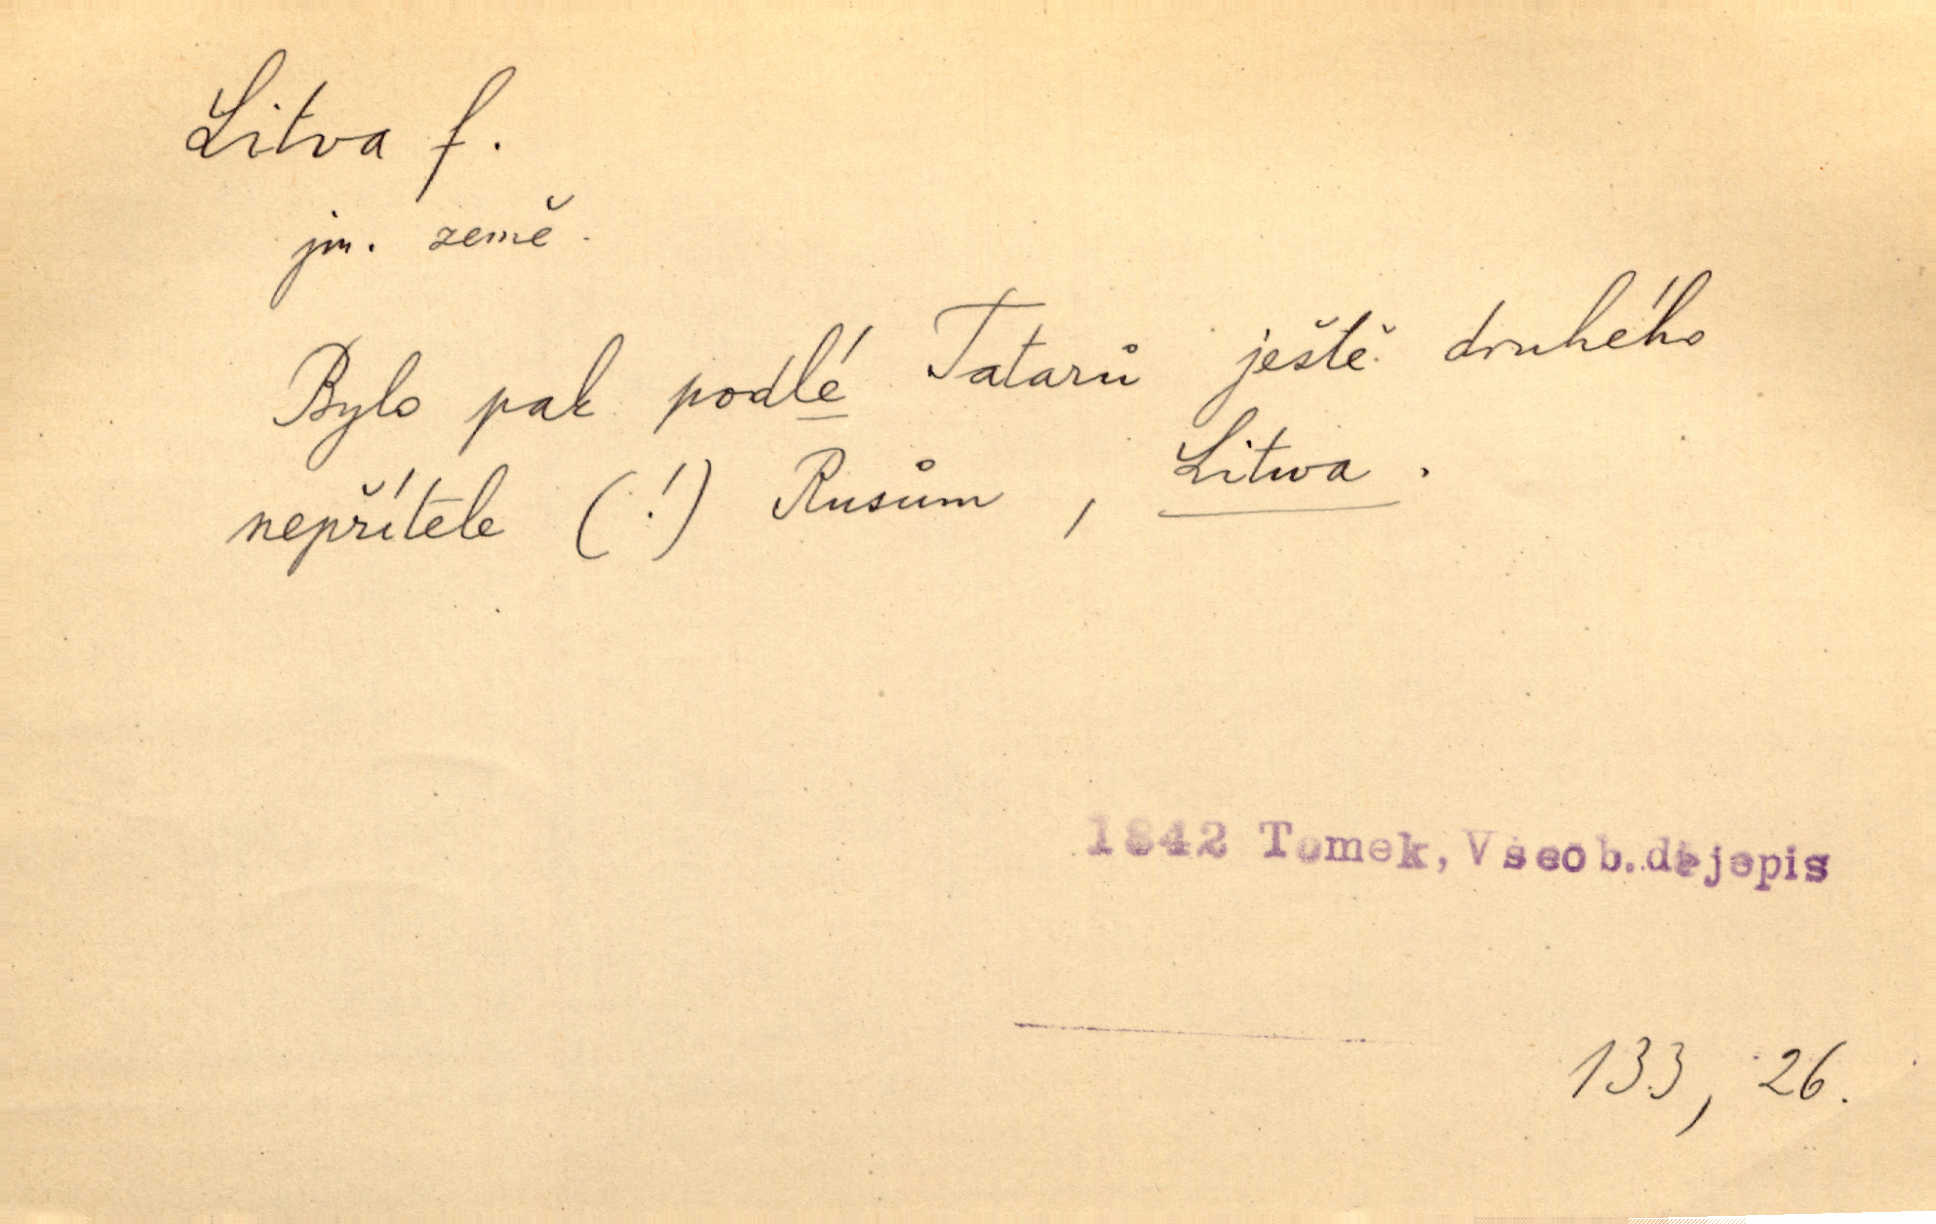 Litva f.
jm. země.
Bylo pak podlé Tatarů ještě druhého
nepřítele (!) Rusům, Litwa.
1842 Tomek, Všeob. dějepis
133, 26.